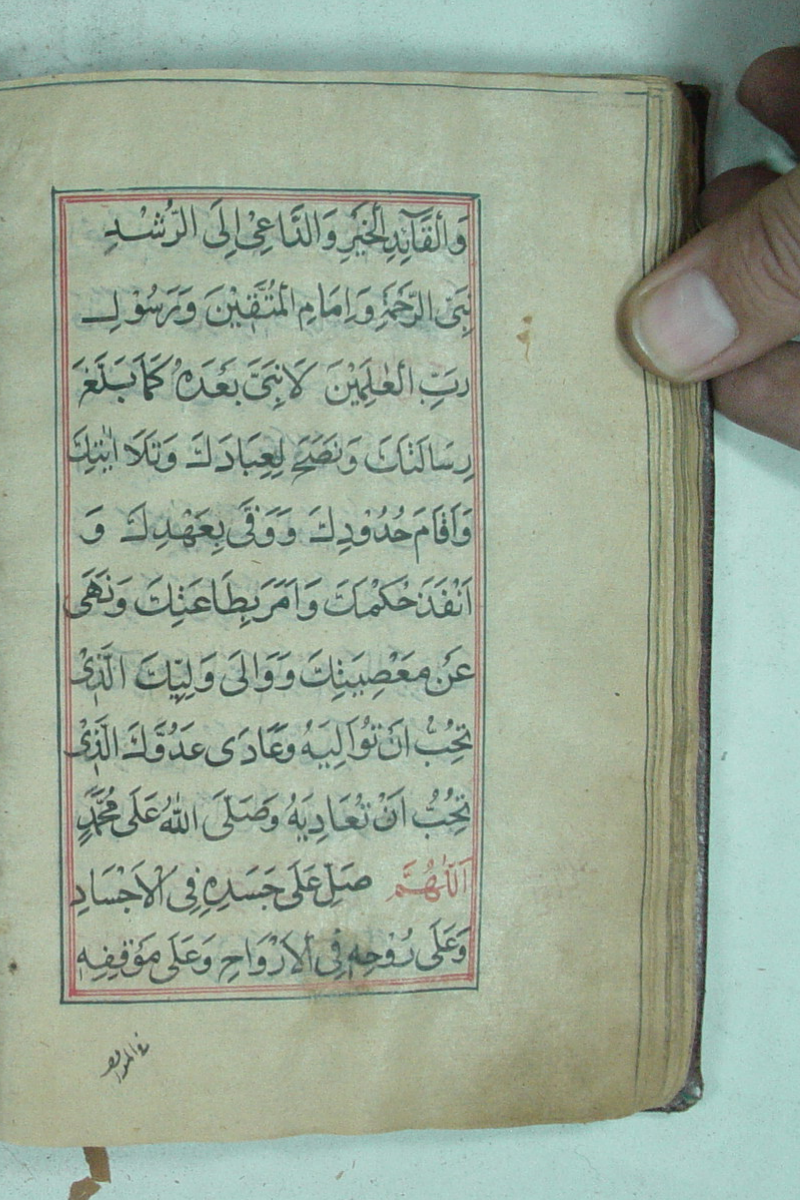 وَالْقَآئِدِ الْخَيْرِ وَالدَّاعِىْ اِلَى الرُّشْدِ
نَبِىِّ الرَّحْمَةِ وَاِمَامِ الْمُتَّقِيْنَ وَرَسُوْلِ
رَبِّ الْعٰلَمِيْنَ لَا نَبِىَّ بَعْدَهٗ كَمَا بَلَّغَ
رِسَالَتَكَ وَنَصَحَ لِعِبَادِكَ وَتَلَا اٰيٰتِكَ
وَاَقَامَ حُدُوْدَكَ وَوَفٰى بِعَهْدِكَ وَ
اَنْفَذَ حُكْمَكَ وَاَمَرَ بِطَاعَتِكَ وَنَهٰى
عَنْ مَعْصِيَتِكَ وَوَالٰى وَلِيِّكَ الَّذِىْ
تُحِبُّ اَنْ تُوَالِيَهٗ وَعَادٰى عَدُوَّكَ الَّذِىْ
تُحِبُّ اَنْ تُعَادِيَهٗ وَصَلَّى اللّٰهُ عَلٰى مُحَمَّدٍ
اَللّٰهُمَّ صَلِّ عَلٰى جَسَدِهٖ فِى الْاَجْسَادِ
وَعَلٰى رُوْحِهٖ فِى الْاَرْوَاحِ وَعَلٰى مَوْقِفِهٖ
فى المواقف